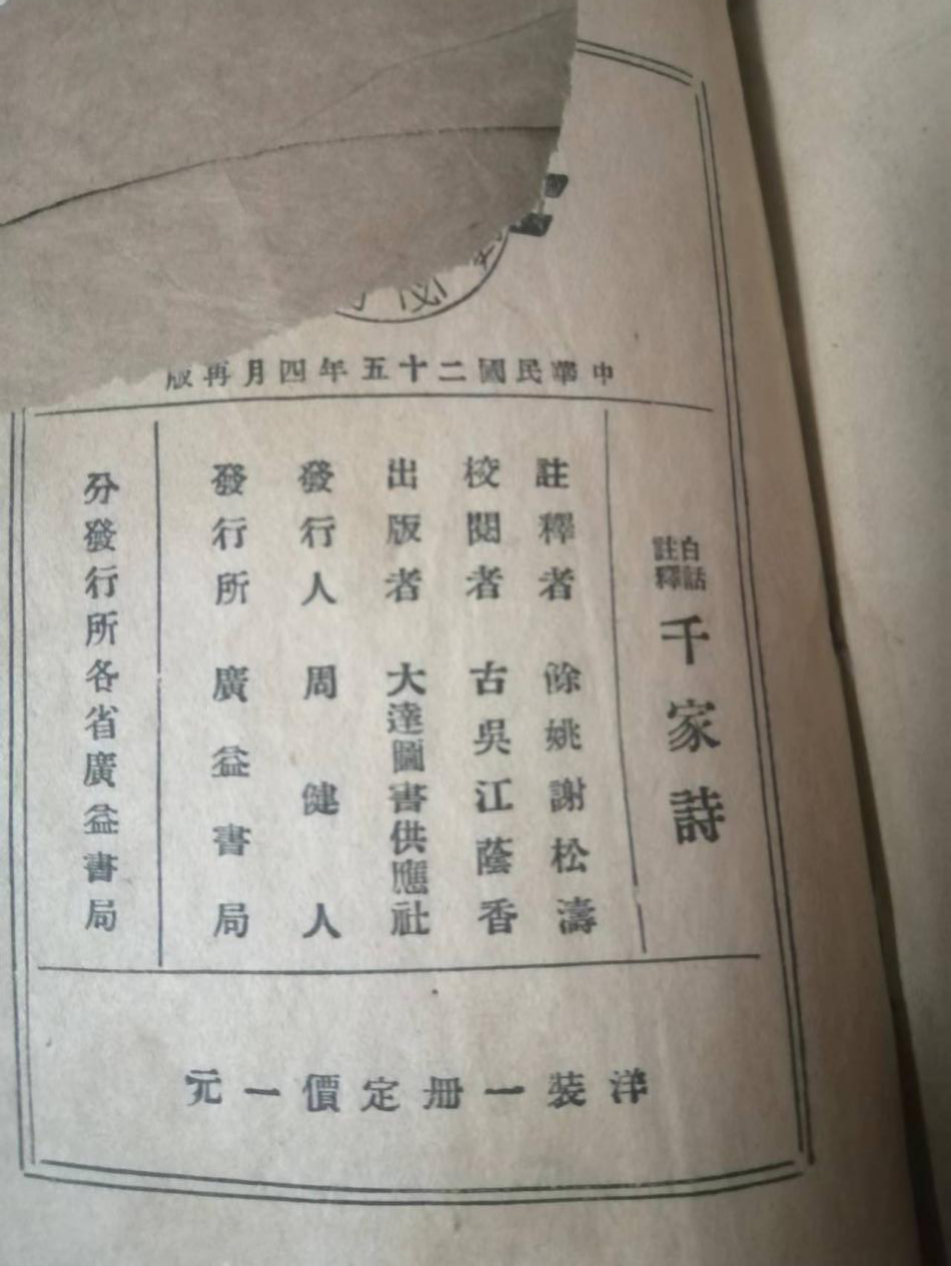 中華民國二十五年四月再版
白話註釋
千家詩
註釋者 餘姚謝松濤
校閱者 古吳江蔭香
出版者 大達圖書供應社
發行人 周健人
發行所 廣益書局
分發行所各省廣益書局
洋裝一册定價一元